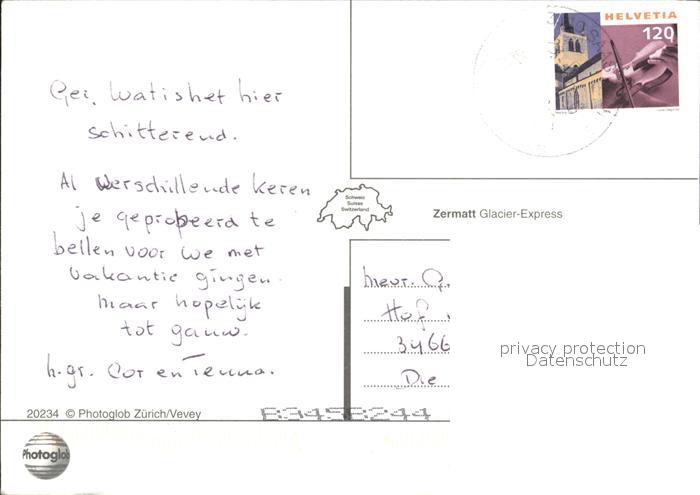 HELVETIA
120
Ger. Wat is het hier
schitterend.
Al verschillende keren
je geprobeerd te
bellen voor we met
vakantie gingen.
Maar hopelijk
tot gauw.
h.gr. Cor en Tenna.
Schweiz
Suisse
Switzerland
Zermatt Glacier-Express
Mevr. G.
Hof
3466
Die
privacy protection
Datenschutz
20234 © Photoglob Zürich/Vevey
Photoglob